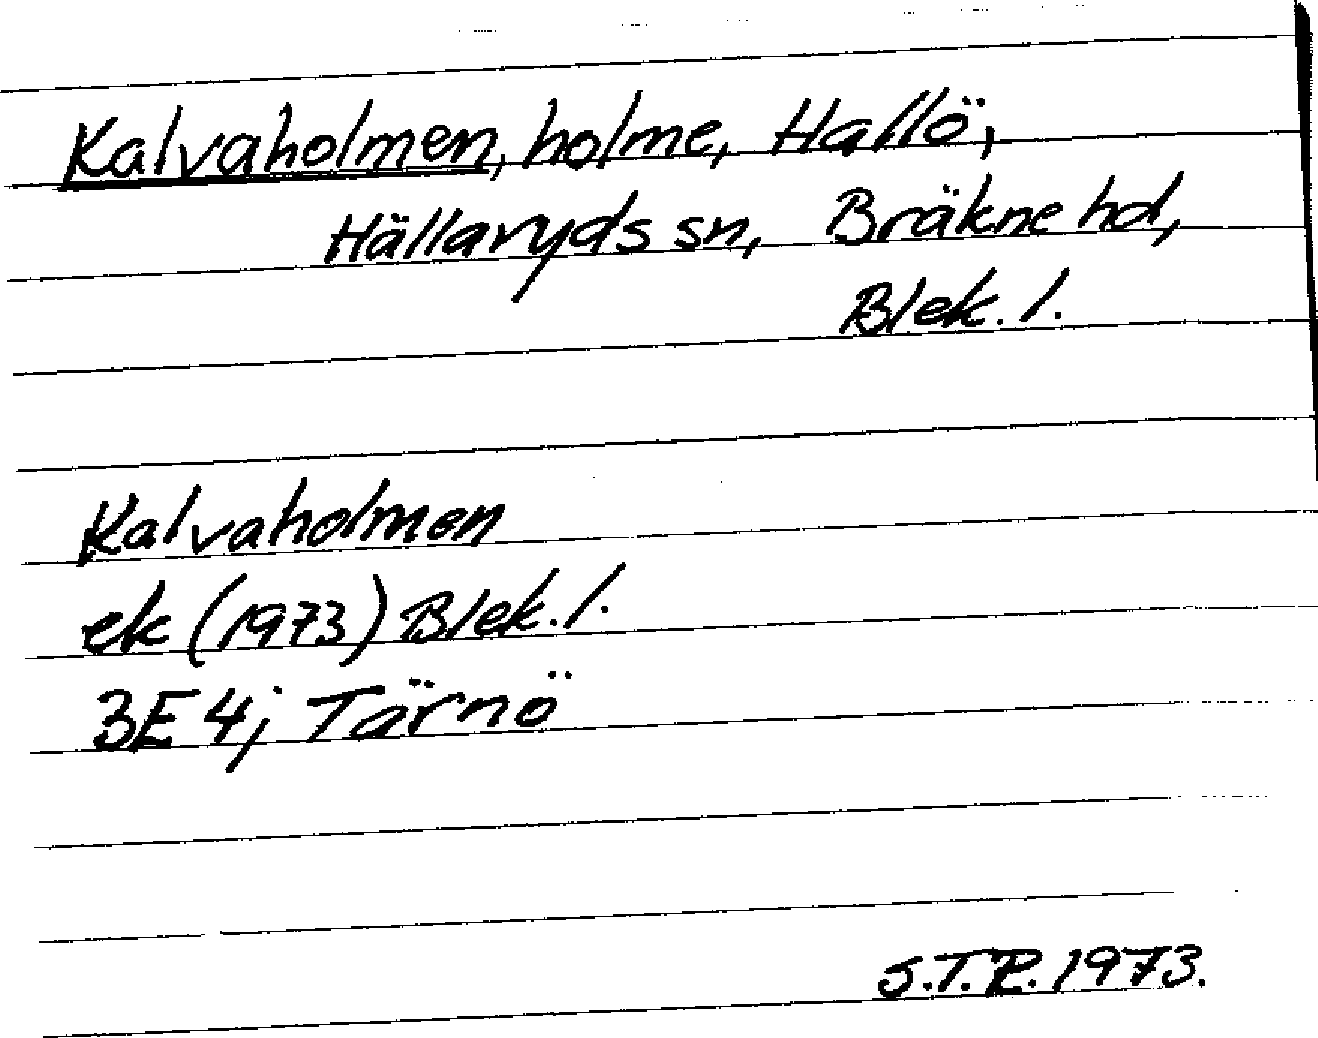 Kalvaholmen, holme, Hallö,
Hällaryds sn, Bräkne hd,
Blek. l.
Kalvaholmen
ek (1973) Blek. l.
3E 4j Tärnö
S.T.R. 1973.